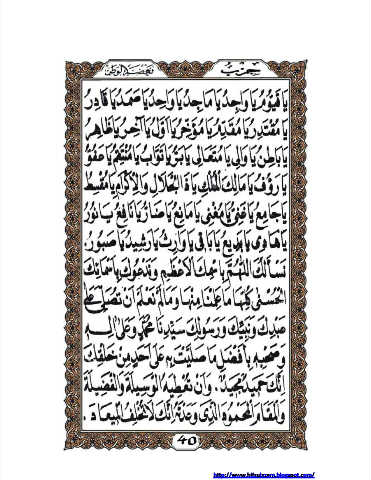 حزب
يا قيوم يا واجد يا ماجد يا واحد يا صمد يا قادر
يا مقتدر يا مقدم يا مؤخر يا أول يا آخر يا ظاهر
يا باطن يا والي يا متعالي يا بر يا تواب يا منتقم يا عفو
يا رؤف يا مالك الملك يا ذا الجلال والإكرام يا مقسط
يا جامع يا غني يا مغني يا مانع يا ضار يا نافع يا نور
يا هادي يا بديع يا باقي يا وارث يا رشيد يا صبور.
نسألك اللهم باسمك الأعظم وندعوك بأسمائك
الحسنى كلها ما علمنا منها وما لم نعلم أن تصلي على
عبدك ونبيك ورسولك سيدنا محمد وعلى اله
وصحبه بأفضل ما صليت به على أحد من خلقك
إنك حميد مجيد. وأن تعطيه الوسيلة والفضيلة
والمقام المحمود الذي وعدته إنك لا تخلف الميعاد.
40